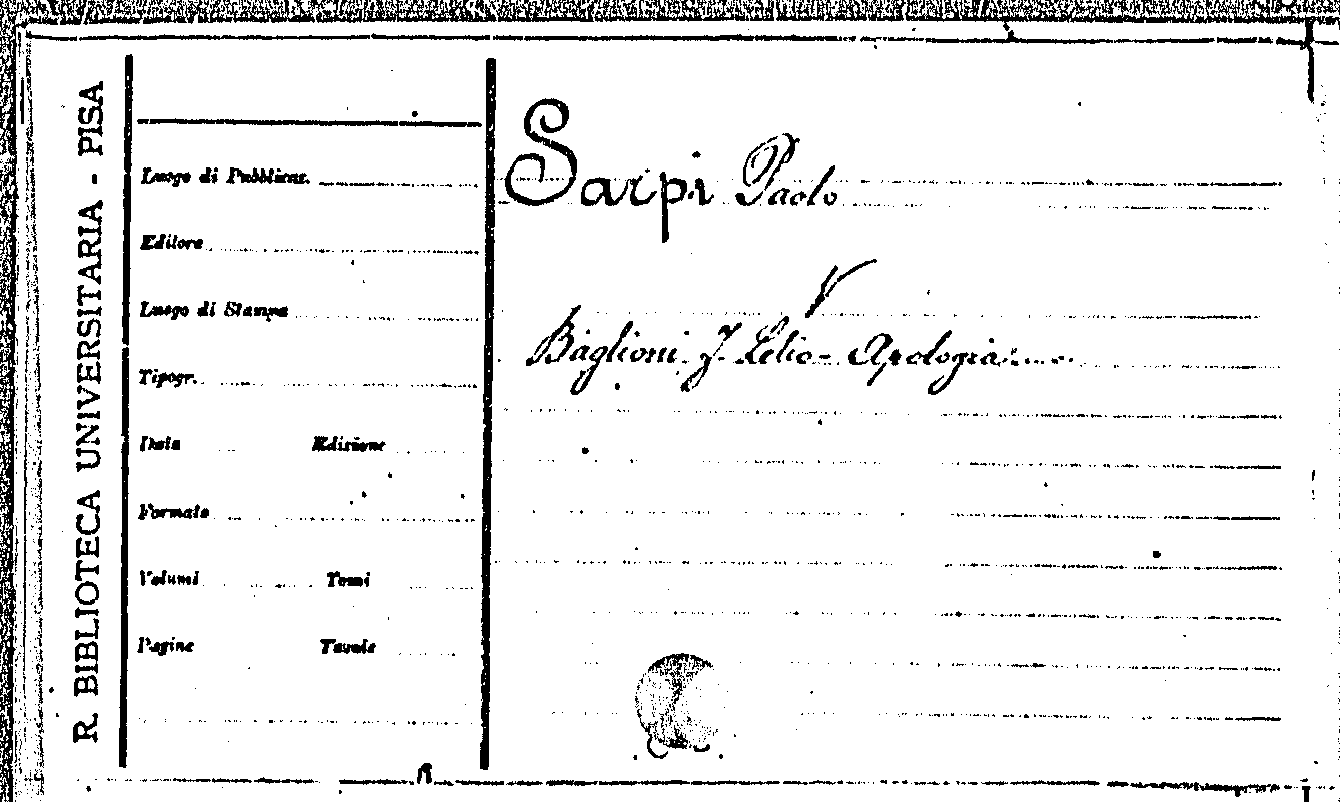 R. BIBLIOTECA UNIVERSITARIA - PISA
Luogo di Pubblicaz.
Editore
Luogo di Stampa
Tipogr.
Data Edizione
Formato
Volumi Tomi
Pagine Tavole
Sarpi Paolo
V
Baglioni F. Lelio - Apologia.....